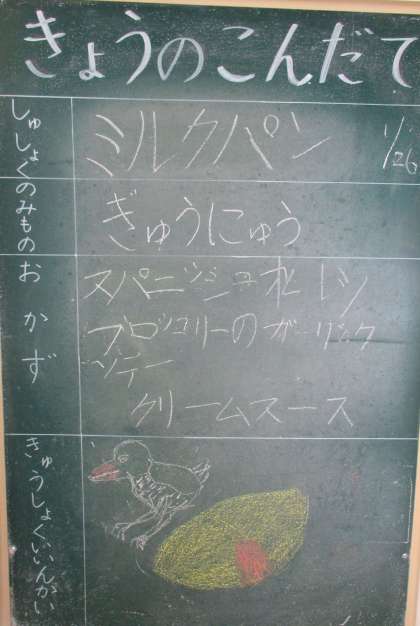 きょうのこんだて
しゅしょく
ミルクパン
1/26
のみもの
ぎゅうにゅう
おかず
スパニッシュオムレツ
ブロッコリーのガーリック
ソテー
クリームスース
きゅうしょくいいんかい